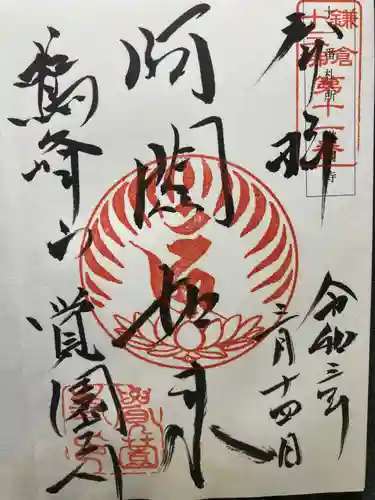 奉拝
令和三年
三月十四日
阿閦如来
鷲峰山
覚園寺
鎌倉
十三佛
第十一番
札所